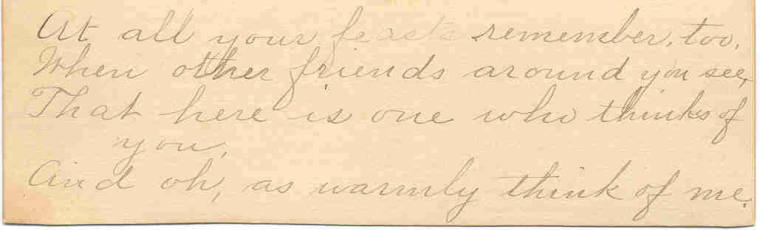 At all your feasts remember, too,
When other friends around you see,
That here is one who thinks of
you,
And oh, as warmly think of me.